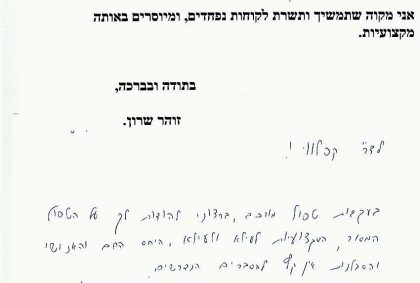 אני מקוה שתמשיך ותשרת לקוחות נפחדים, ומיוסרים באותה
מקצועיות.
בתודה ובברכה,
זוהר שרון.
לדר' קפלווי !
בעקבות טיפול מורכב, ברצוני להודות לך על הטיפול
המסור, המקצועיות לעילא ולעילא, היחס החם והאנושי
והסבלנות אין קץ להסברים הנדרשים.